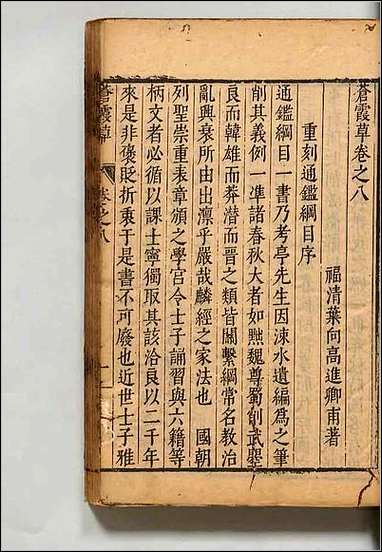 蒼霞草卷之八
福清葉向高進卿甫著
重刻通鑑綱目序
通鑑綱目一書乃考亭先生因涑水遺編為之筆
削其義例一準諸春秋大者如黜魏尊蜀削武曌
良而韓雄而莽潛而晉之類皆關繫綱常名教治
亂興衰所由出凜乎嚴哉麟經之家法也 國朝
列聖崇重表章頒之學宮令士子誦習與六籍等
柄文者必循以課士寧獨取其該洽良以二千年
來是非褒貶折衷于是書不可廢也近世士子雅
蒼霞草 卷之八 一